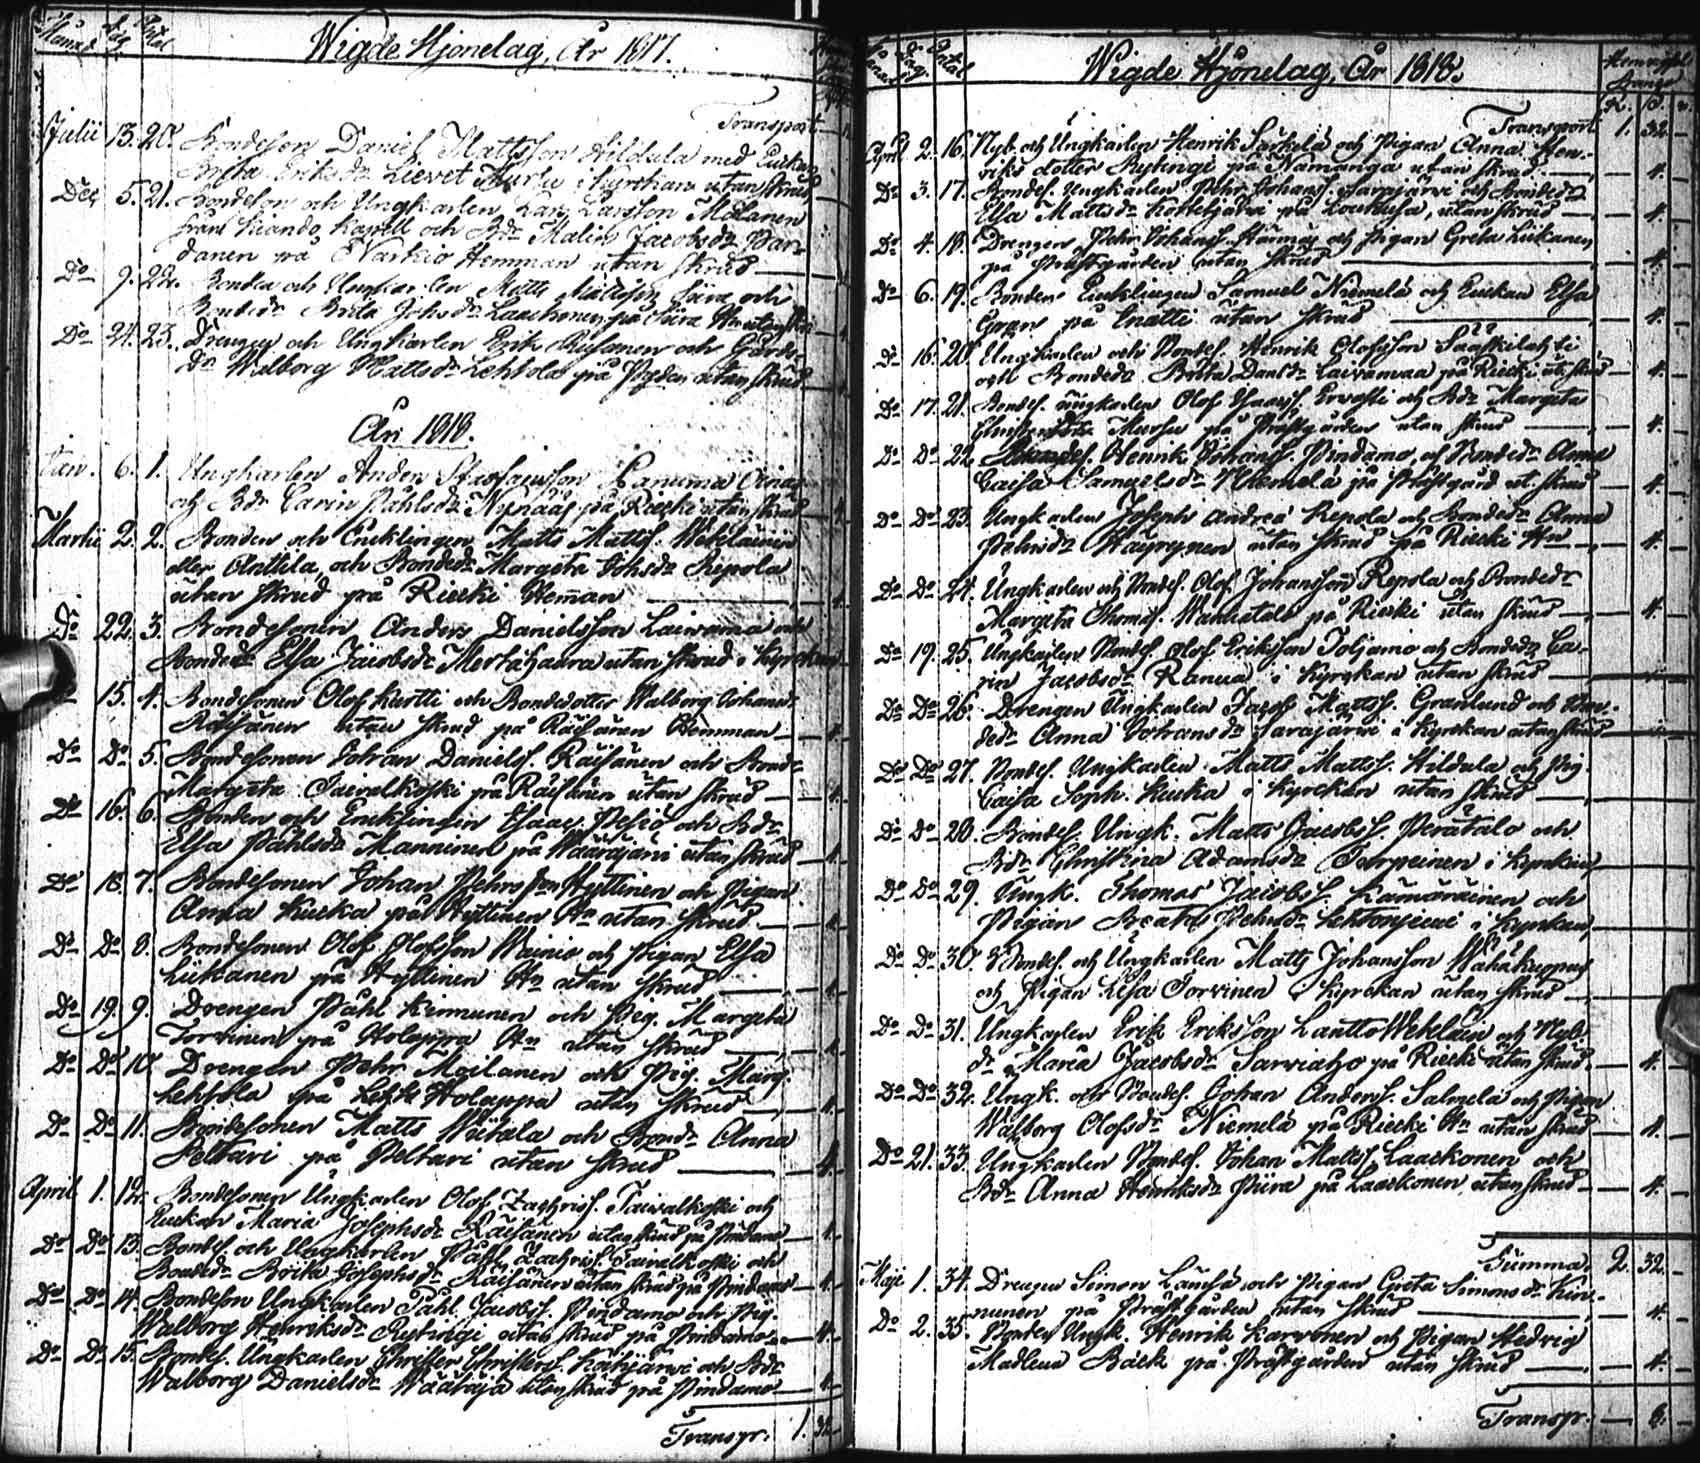 Månad Dag Antal
Wigde Hjonelag, År 1817.
Transport
Julii 13. 20. Bondeson Daniel Mattsson Hildula med Enkan
Brita Eriksdr Lievet i Kyrckan utan skrud
Dec. 5. 21. Bondeson och Ungkarlen Lars Larsson Mölanen
från Kiando Kapell och Bdr Malin Jacobsdr Par-
danen på Narkio Hemman utan skrud
Do 9. 22. Bonden och Ungkarlen Matts Mattsson Piira och
Bondedr Brita Johsdr Laackonen på Piira Hn utan skrud
Do 24. 23. Drengen och Ungkarlen Erik Rusanen och Gårds-
dr Walborg Mattsdr Lehtola på utan skrud
År 1818.
Jan. 6. 1. Ungkarlen Anders Staffansson
och Bdr Carin Påhlsdr Nynääs på Riecki utan skrud
Martii 2. 2. Bonden och Encklingen Matts Mattss. Weteläinen
eller Anttila, och Bondedr Margeta Johsdr Repola
utan skrud på Riecki Heman
Do 22. 3. Bondesonen Anders Danielsson Laiwama och
Bondedr Elsa Jacobsdr Mertähaara utan skrud i Kyrckan
15. 4. Bondesonen Olof Kurtti och Bondedotter Walborg Johansdr
Räisänen utan skrud på Räisänen Hemman
Do Do 5. Bondesonen Johan Daniels. Räisänen och Bondr
Margeta Taivalkoski på Räisänen utan skrud
Do 16. 6. Bonden och Encklingen Esaac Pesiö och Bdr
Elsa Påhlsdr Manninen på Wäärajärvi utan skrud
Do 18. 7. Bondesonen Johan Pehrsson Hyttinen och Pigan
Anna Kucka på Hyttinen Hn utan skrud
Do Do 8. Bondesonen Olof Olofsson Wainio och Pigan Elsa
Liikanen på Hyttinen Hn utan skrud
Do 19. 9. Drengen Påhl Kinnunen och Pig. Margeta
Torvinen på Holappa Hn utan skrud
Do Do 10. Drengen Pehr Moilanen och Pig. Marg.
Lehtola på Holappa utan skrud
Do Do 11. Bondesonen Matts Wiitala och Bondr Anna
Peltari på Peltari utan skrud
April 1. 12. Bondesonen Ungkarlen Olof Zachriss. Taivalkoski och
Enckan Maria Josephsdr Räisänen utan skrud på Pindamo
Do Do 13. Bondes. och Ungkarlen Påhl Zachriss. Taivalkoski och
Bondedr Brita Josephsdr Räisänen utan skrud på Pindamo
Do Do 14. Bondeson Ungkarlen Påhl Jacobss. Pindamo och Pig.
Walborg Henriksdr Rytingi utan skrud på Pindamo
Do Do 15. Bondes. Ungkarlen Christer Christerss. och Bdr
Walborg Danielsdr Määtäjä utan skrud på Pindamo
Transpr. 1. 32.
Månad Dag Antal
Wigde Hjonelag, År 1818.
Transport 1. 32.
April 2. 16. Nyb. och Ungkarlen Henrik Särkelä och Pigan Anna Hen-
riks dotter Rytingi på Nämänga utan skrud 4.
Do 3. 17. Bondes. Ungkarlen Pehr Johanss. Sarajärvi och Bondedr
Elsa Mattsdr på Loukusa, utan skrud 4.
Do 4. 18. Drengen Pehr Johanss. och Pigan Greta Liikanen
på Prästgården utan skrud 4.
Do 6. 19. Bonden Encklingen Samuel Niemelä och Enckan Elsa
Gran på Inatti utan skrud 4.
Do 16. 20. Ungkarlen och Bondes. Henrik Olofsson Sääskilahti
och Bondedr Brita Danlsdr Laivamaa på Riecki utn skrud 4.
Do 17. 21. Bondes. Ungkarlen Olof Esaacss. Ervasti och Bdr Margeta
Mursu på Prästgården utan skrud 4.
Do Do 22. Bondes. Henrik Johanss. Pindamo och Bondedr Anna
Caisa Samuelsdr Niemelä på Prästgård ut. skrud 4.
Do Do 23. Ungkarlen Joseph Andreæ Repola och Bondedr Anna
Pehrsdr Haurynen utan skrud på Riecki Hn 4.
Do Do 24. Ungkarlen och Bondes. Olof Johansson Repola och Bondedr
Margeta Thomas. Wanhatalo på Riecki utan skrud 4.
Do 19. 25. Ungkarlen Bondes. Olof Eriksson Toljamo och Bondedr Ca-
rin Jacobsdr Ranua i Kyrckan utan skrud
Do Do 26. Drengen Ungkarlen Jacob Mattss. Granlund och Bon-
dedr Anna Johansdr Sarajärvi i Kyrckan utan skrud
Do Do 27. Bondes. Ungkarlen Matts Mattss. Hildula och Pig.
Caisa Soph. Kucka i Kyrckan utan skrud
Do Do 28. Bondes. Ungk. Matts Jacobss. Perätalo och
Bdr Christina Adamsdr Torpeinen i Kyrckan
Do Do 29. Ungk. Thomas Jacobss. Kämäräinen och
Pigan Beata Pehrsdr i Kyrckan
Do Do 30. Bondes. och Ungkarlen Matts Johansson Wähäkuppus
och Pigan Lisa Torvinen i Kyrckan utan skrud
Do Do 31. Ungkarlen Erik Eriksson Lantto Weteläin och Nyb.
dr Maria Jacobsdr Sarviaho på Riecki utan skrud 4.
Do Do 32. Ungk. och Bondes. Johan Anderss. Salmela och Pigan
Walborg Olofsdr Niemelä på Riecki Hn utan skrud 4.
Do 21. 33. Ungkarlen Bondes. Johan Mattss. Laackonen och
Bdr Anna Henriksdr Piira på Laackonen utan skrud 4.
Summa. 2. 32.
Maji 1. 34. Drengen Simon Lausa och Pigan Greta Simonsdr Kin-
nunen på Prästgården utan skrud 4.
Do 2. 35. Bondes. Ungk. Henrik Karvonen och Pigan Hedvig
Madlena Bäck på Prästgården utan skrud 4.
Transpr. 8.